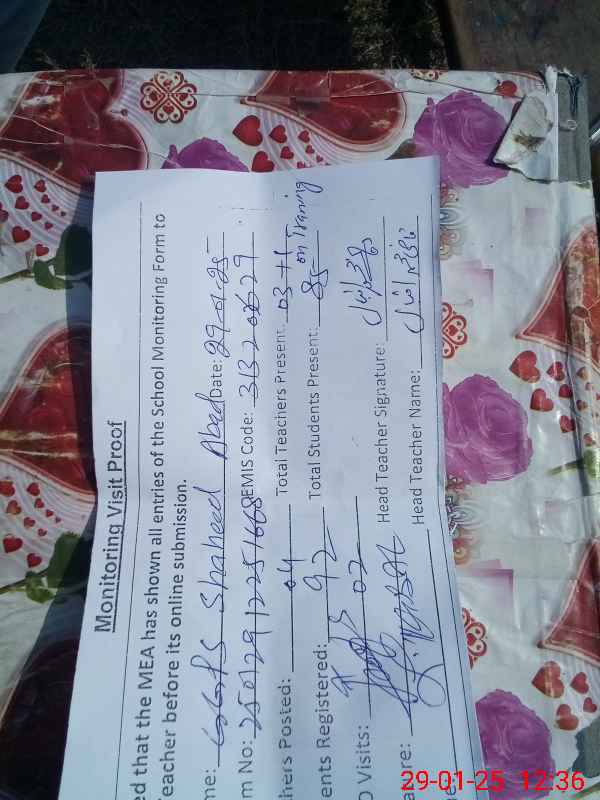 Monitoring Visit Proof
ed that the MEA has shown all entries of the School Monitoring Form to
eacher before its online submission.
me: GGPS Shaheed Abad Date: 29-01-25
m No: EMIS Code: 31320629
hers Posted: 04 Total Teachers Present: 03+1 on Training
ents Registered: 92 Total Students Present: 85
O Visits: 02 Head Teacher Signature:
ure: Head Teacher Name:
29-01-25 12:36